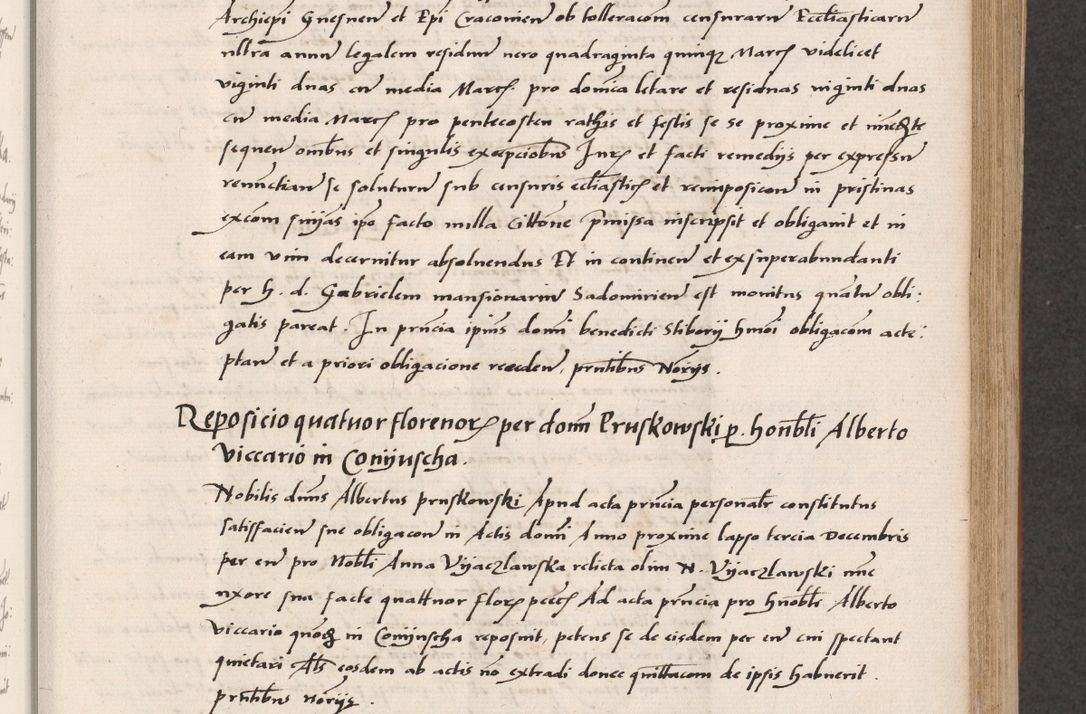 Archiepi Gnesnen et Epi Cracovien ob tolleracom censurarum Ecclasticarum
ultra annum legalem residuum vero quadraginta quinq Marcs videlicet
viginti duas cu media Marcs pro domica letare et residuas viginti duas
cu media Marcs pro pentecosten rathis et festis se se proxime et
sequen ombus et singulis excepcionibus Juris et facti remedijs per expressum
renunctian se soluturum sub censuris ecclasticis et reimposicon in pristinas
excom snias ipo facto nulla Cittone pmissa inscripsit et obligavit et in
eam vim decernitur absolvendus Et in continen et exsuperabundanti
per h. d. Gabrielem mansionarium Sadomirien est monitus quatu obli:
gatis pareat. In pncia ipius domi benedicti Stiborij hmoi obligacom acce:
ptan et a priori obligacione receden, pntibus Norijs.
Reposicio quatuor florenor per dom Pruskowski p. honbli Alberto
viccario in Conijuscha.
Nobilis dnus Albertus pruskowski Apud acta pncia personalr constitutus
satisfacien sue obligacon in Actis domi Anno proxime lapso tercia Decembris
per eu pro Nobli Anna Vijaczlawska relicta olim N. Vijaczlawski nuc
uxore sua facte quattuor flor pcces Ad acta pncia pro hnobli Alberto
viccario in Conijuscha reposuit, petens se de eisdem per eu cui spectant
quietari Als eosdem ab actis no extradi donec quittacom de ipsis habuerit.
pntibus Norijs.